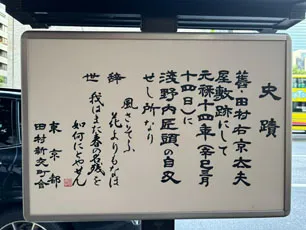 史蹟
舊・田村右京太夫
屋敷跡にして
元禄十四年(辛巳)三月
十四日に
浅野内匠頭の自刃
せし所なり
辞世
風さそふ
花よりもなほ
我はまた春の名残を
如何にとやせん
東京都
田村新交町会